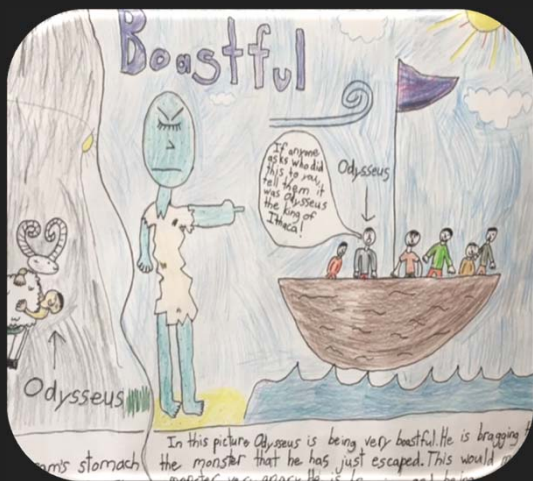 Boastful
If anyone
asks who did
this to you,
tell them it
was Odysseus
the king of
Ithaca!
Odysseus
Odysseus
In this picture Odysseus is being very boastful. He is bragging
stomach
the monster that he has just escaped. This would
monster very angry. He is